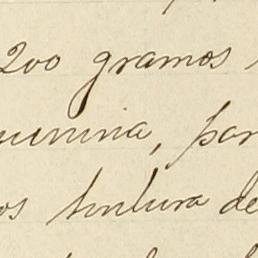 200 gramos
uinina, par
os tintura de